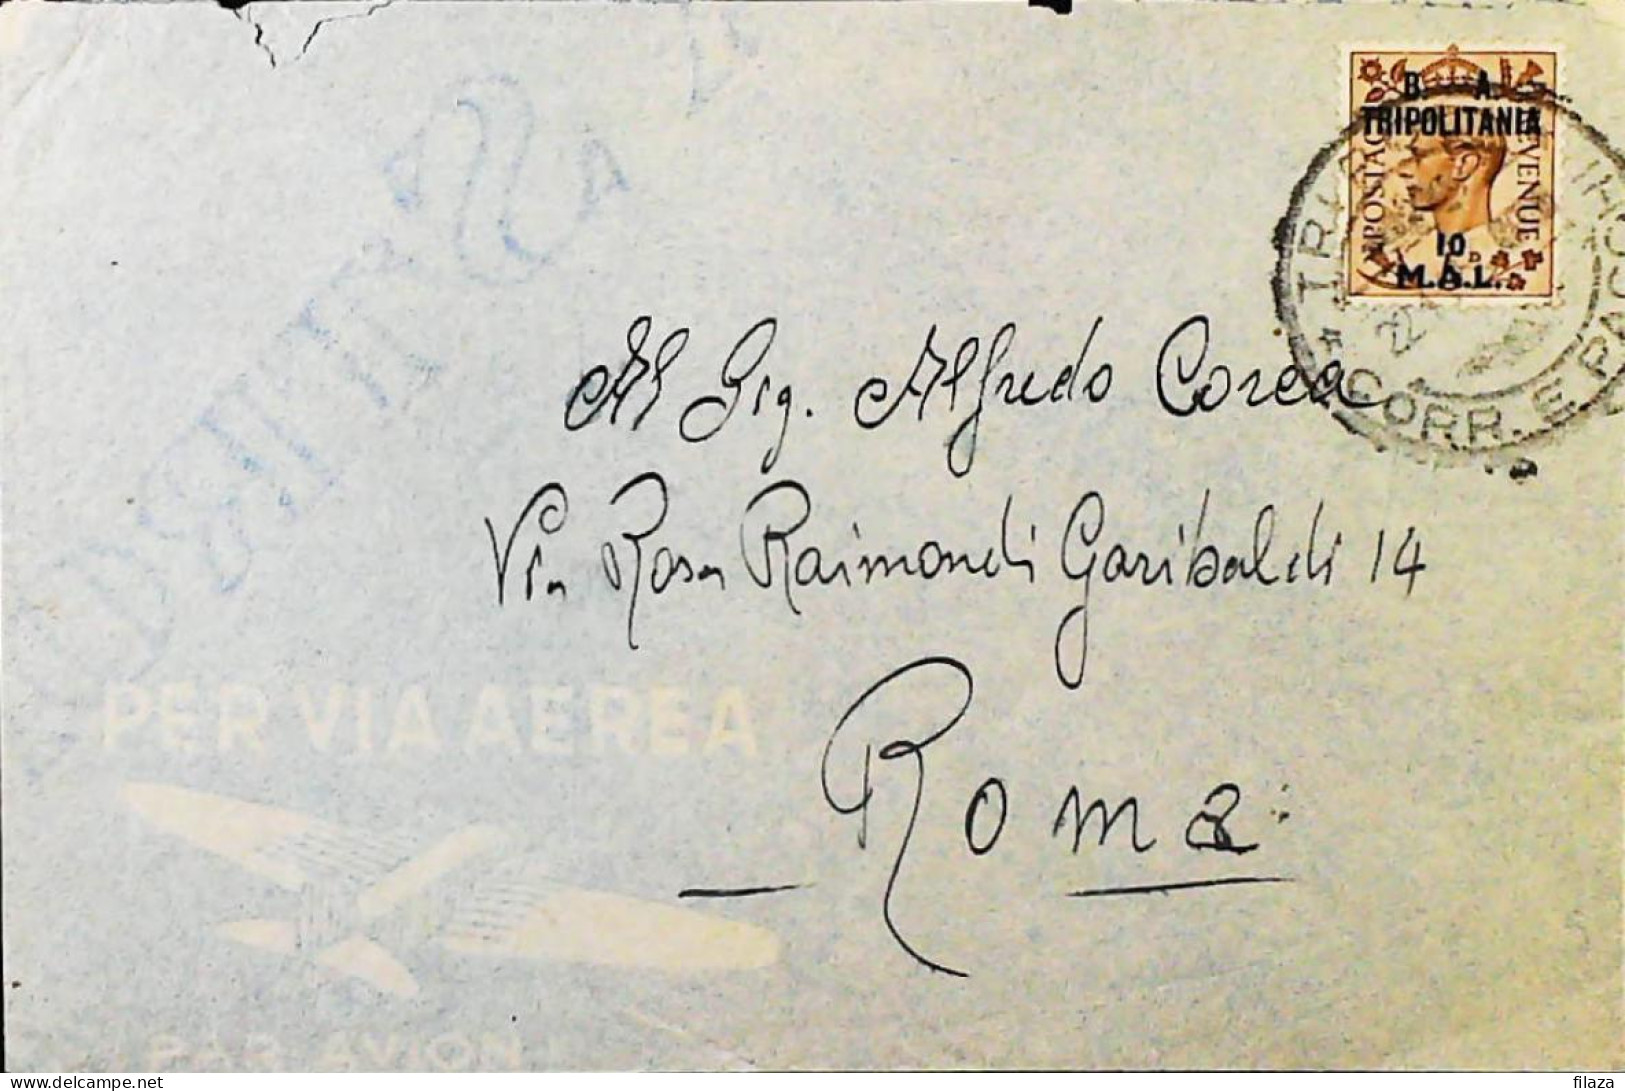 B. A.
TRIPOLITANIA
POSTAGE REVENUE
10
M.A.L.
CORR. E PACCHI
Al Sig. Alfredo Corea
Via Rosa Raimondi Garibaldi 14
Roma
PER VIA AEREA
PAR AVION
filaza